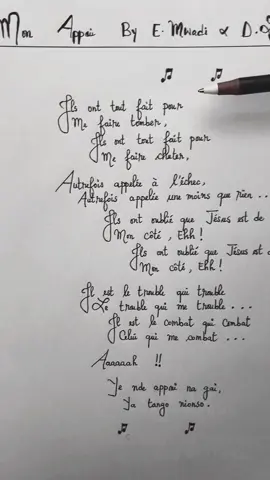 Mon Appui By E. Mwadi & D.
Ils ont tout fait pour
Me faire tomber,
Ils ont tout fait pour
Me faire chuter,
Autrefois appelée à l'échec,
Autrefois appelée une moins que rien ...
Ils ont oublié que Jésus est de
Mon côté, Ehh !
Ils ont oublié que Jésus est d
Mon côté, Ehh !
Il est le trouble qui trouble
Le trouble qui me trouble ...
Il est le combat qui combat
Celui qui me combat ...
Aaaaaah !!
Ye nde appui na gai,
Ya tango nionso.